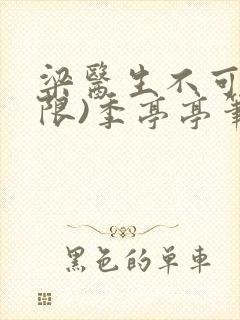 梁醫生不可
限)季亭亭筆
黑色的單車